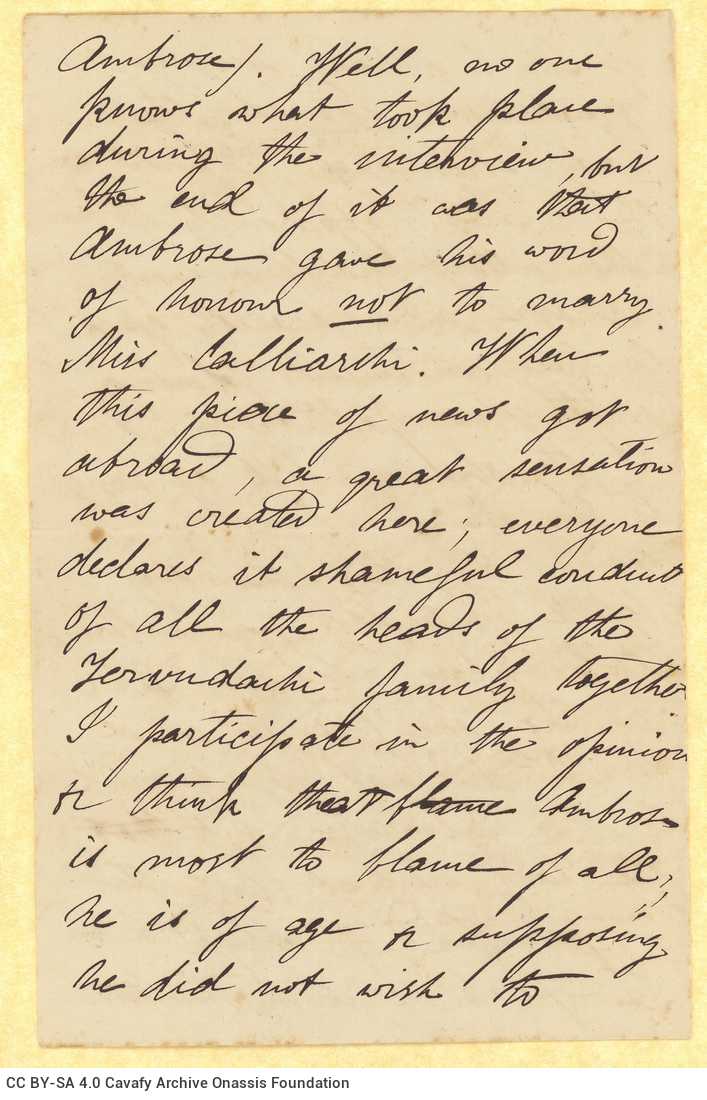 Ambrose). Well, no one
knows what took place
during the interview, but
the end of it was that
Ambrose gave his word
of honour not to marry
Miss Calliarchi. When
this piece of news got
abroad, a great sensation
was created here; everyone
declares it shameful conduct
of all the heads of the
Zervudachi family together
I participate in the opinion
& think that blame Ambrose
is most to blame of all;
he is of age & supposing
he did not wish to
CC BY-SA 4.0 Cavafy Archive Onassis Foundation